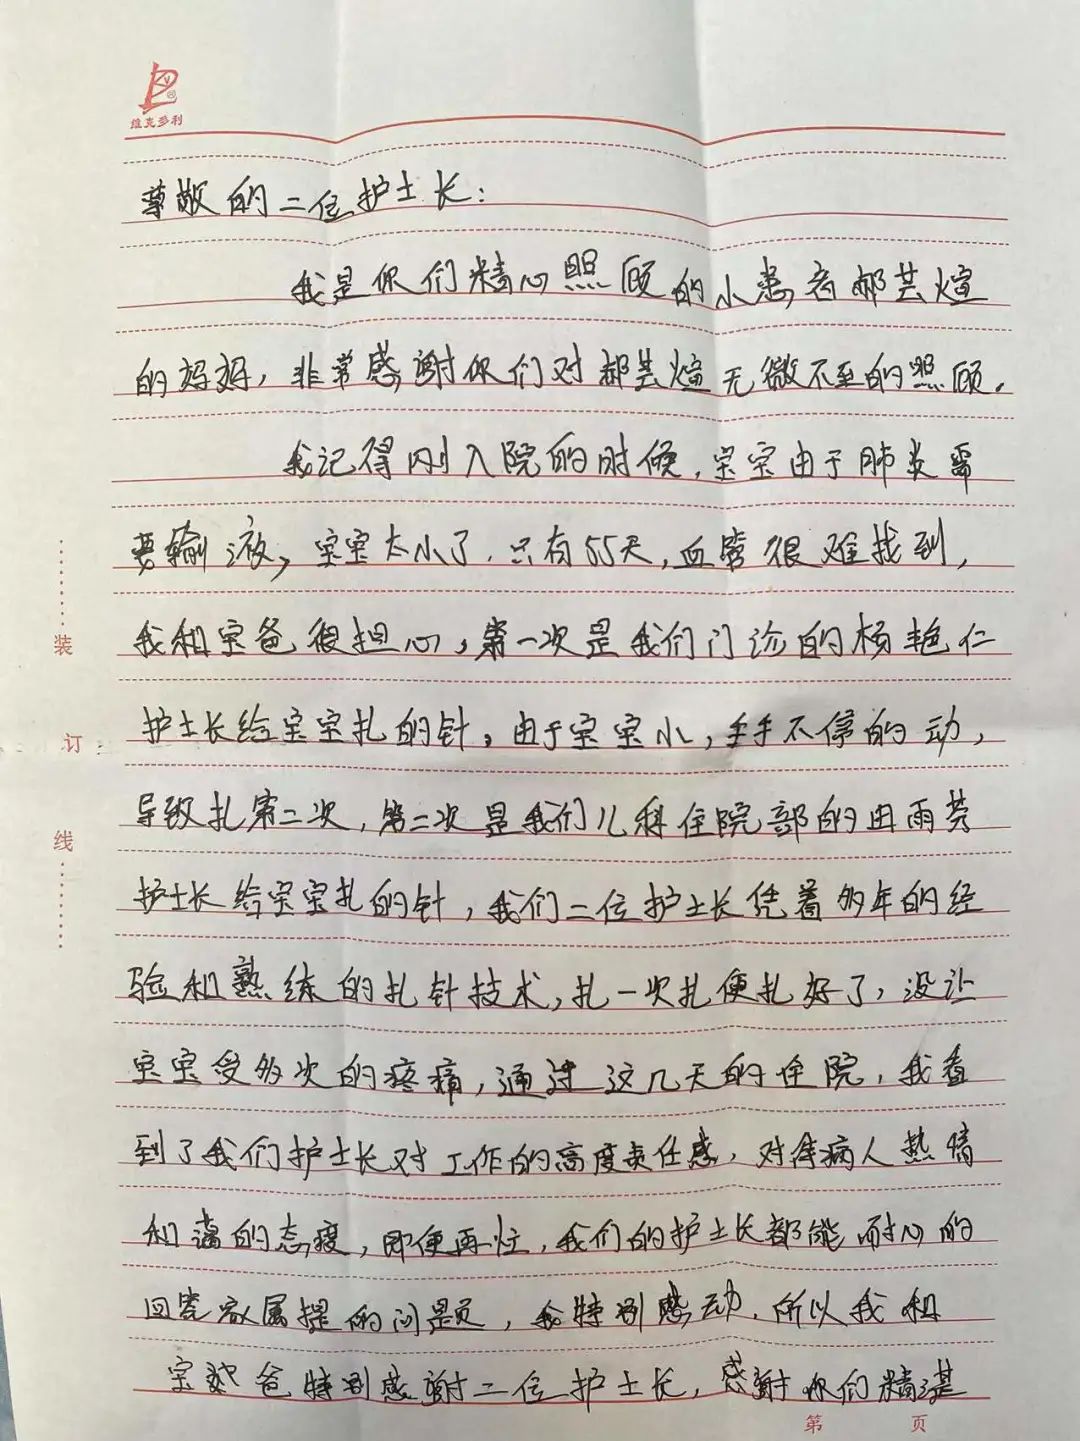 维克多利
尊敬的二位护士长:
我是你们精心照顾的小患者郝芸煊
的妈妈,非常感谢你们对郝芸煊无微不至的照顾。
我记得刚入院的时候,宝宝由于肺炎需
要输液,宝宝太小了,只有55天,血管很难找到,
我和宝爸很担心,第一次是我们门诊的杨艳仁
护士长给宝宝扎的针,由于宝宝小,手不停的动,
导致扎第二次,第二次是我们儿科住院部的田雨芳
护士长给宝宝扎的针,我们二位护士长凭着多年的经
验和熟练的扎针技术,扎一次扎便扎好了,没让
宝宝受多次的疼痛,通过这几天的住院,我看
到了我们护士长对工作的高度责任感,对待病人热情
和蔼的态度,即便再忙,我们的护士长都能耐心的
回答家属提的问题,我特别感动,所以我和
宝爸特别感谢二位护士长,感谢你们精湛
装
订
线
第 页